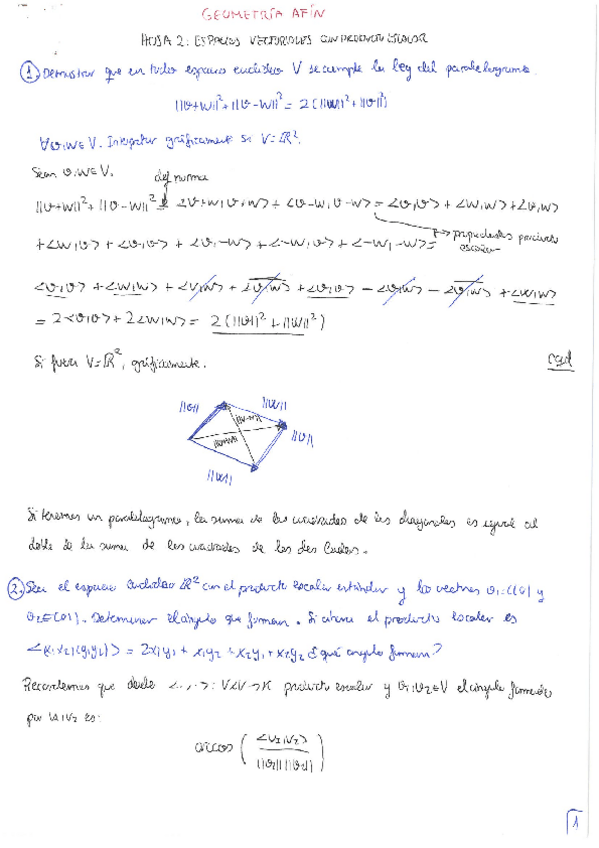 GEOMETRÍA AFÍN
HOJA 2: ESPACIOS VECTORIALES CON PRODUCTO ESCALAR
① Demostrar que en todo espacio euclídeo V se cumple la ley del paralelogramo.
||v+w||² + ||v-w||² = 2(||w||² + ||v||²)
∀v,w∈V. Interpretar gráficamente si V=ℝ².
Sean v,w∈V.
def norma
||v+w||² + ||v-w||² = <v+w,v+w> + <v-w,v-w> = <v,v> + <w,w> + <v,w>
→ propiedades producto
escalar
+ <w,v> + <v,v> + <v,-w> + <-w,v> + <-w,-w> =
<v,v> + <w,w> + <v,w> + <v,w> + <v,v> - <v,w> - <v,w> + <w,w>
= 2<v,v> + 2<w,w> = 2(||v||² + ||w||²)
cqd
Si fuera V=ℝ², gráficamente.
||v|| ||w||
||v-w||
||v+w|| ||v||
||w||
Si tenemos un paralelogramo, la suma de los cuadrados de las diagonales es igual al
doble de la suma de los cuadrados de los dos lados.
② Sea el espacio euclídeo ℝ² con el producto escalar estándar y los vectores v₁=(1,0) y
v₂=(0,1). Determinar el ángulo que forman. Si ahora el producto escalar es
<(x₁,x₂),(y₁,y₂)> = 2x₁y₁ + x₁y₂ + x₂y₁ + x₂y₂ ¿qué ángulo forman?
Recordemos que dado <.,.>: V×V→K producto escalar y v₁,v₂∈V el ángulo formado
por v₁,v₂ es:
arccos ( <v₁,v₂> / ||v₁|| ||v₂|| )
1